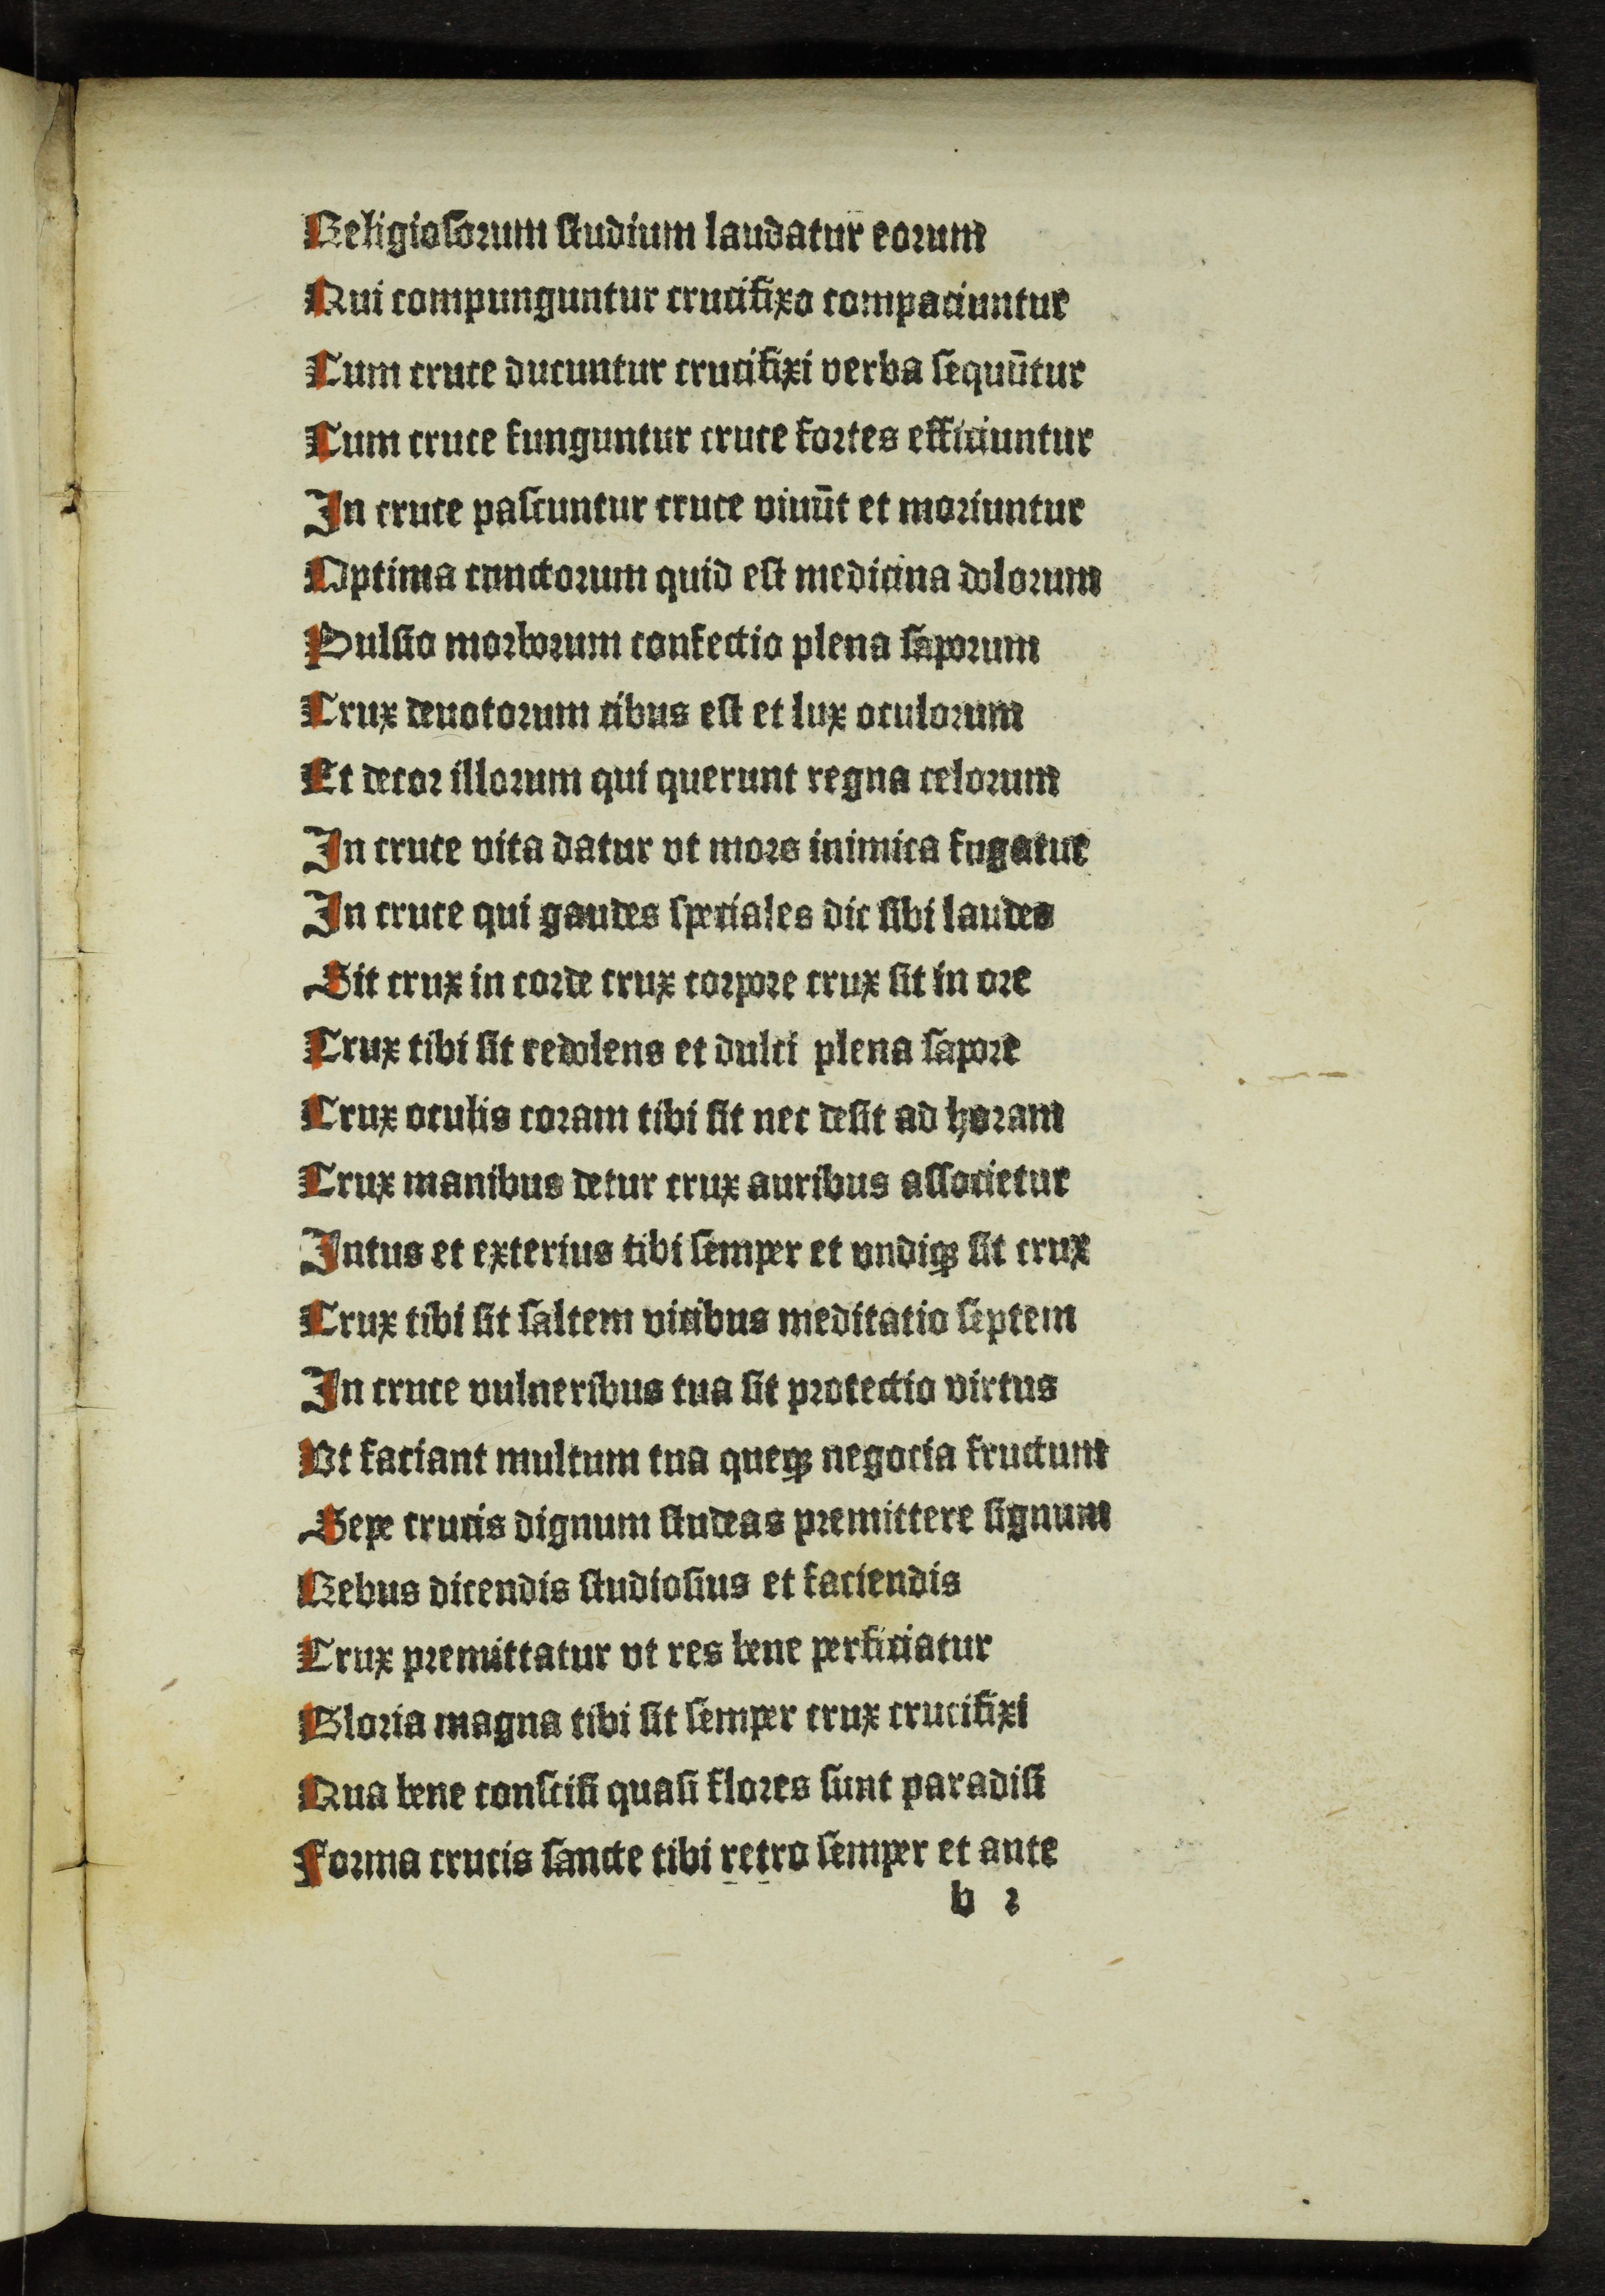 Religiosorum studium laudatur eorum
Qui compunguntur crucifixo compaciuntur
Cum cruce ducuntur crucifixi verba sequūtur
Cum cruce funguntur cruce fortes efficiuntur
In cruce pascuntur cruce viuūt et moriuntur
Optima cunctorum quid est medicina dolorum
Pulsio morborum confectio plena saporum
Crux deuotorum cibus est et lux oculorum
Et decor illorum qui querunt regna celorum
In cruce vita datur vt mors inimica fugatur
In cruce qui gaudes speciales dic sibi laudes
Sit crux in corde crux corpore crux sit in ore
Crux tibi sit redolens et dulci plena sapore
Crux oculis coram tibi sit nec desit ad horam
Crux manibus detur crux auribus associetur
Intus et exterius tibi semper et vndiqꝫ sit crux
Crux tibi sit saltem vicibus meditatio septem
In cruce vulneribus tua sit protectio virtus
Vt faciant multum tua queqꝫ negocia fructum
Sepe crucis dignum studeas premittere signum
Rebus dicendis studiosius et faciendis
Crux premittatur vt res bene perficiatur
Gloria magna tibi sit semper crux crucifixi
Qua bene conscisi quasi flores sunt paradisi
Forma crucis sancte tibi retro semper et ante
b 2